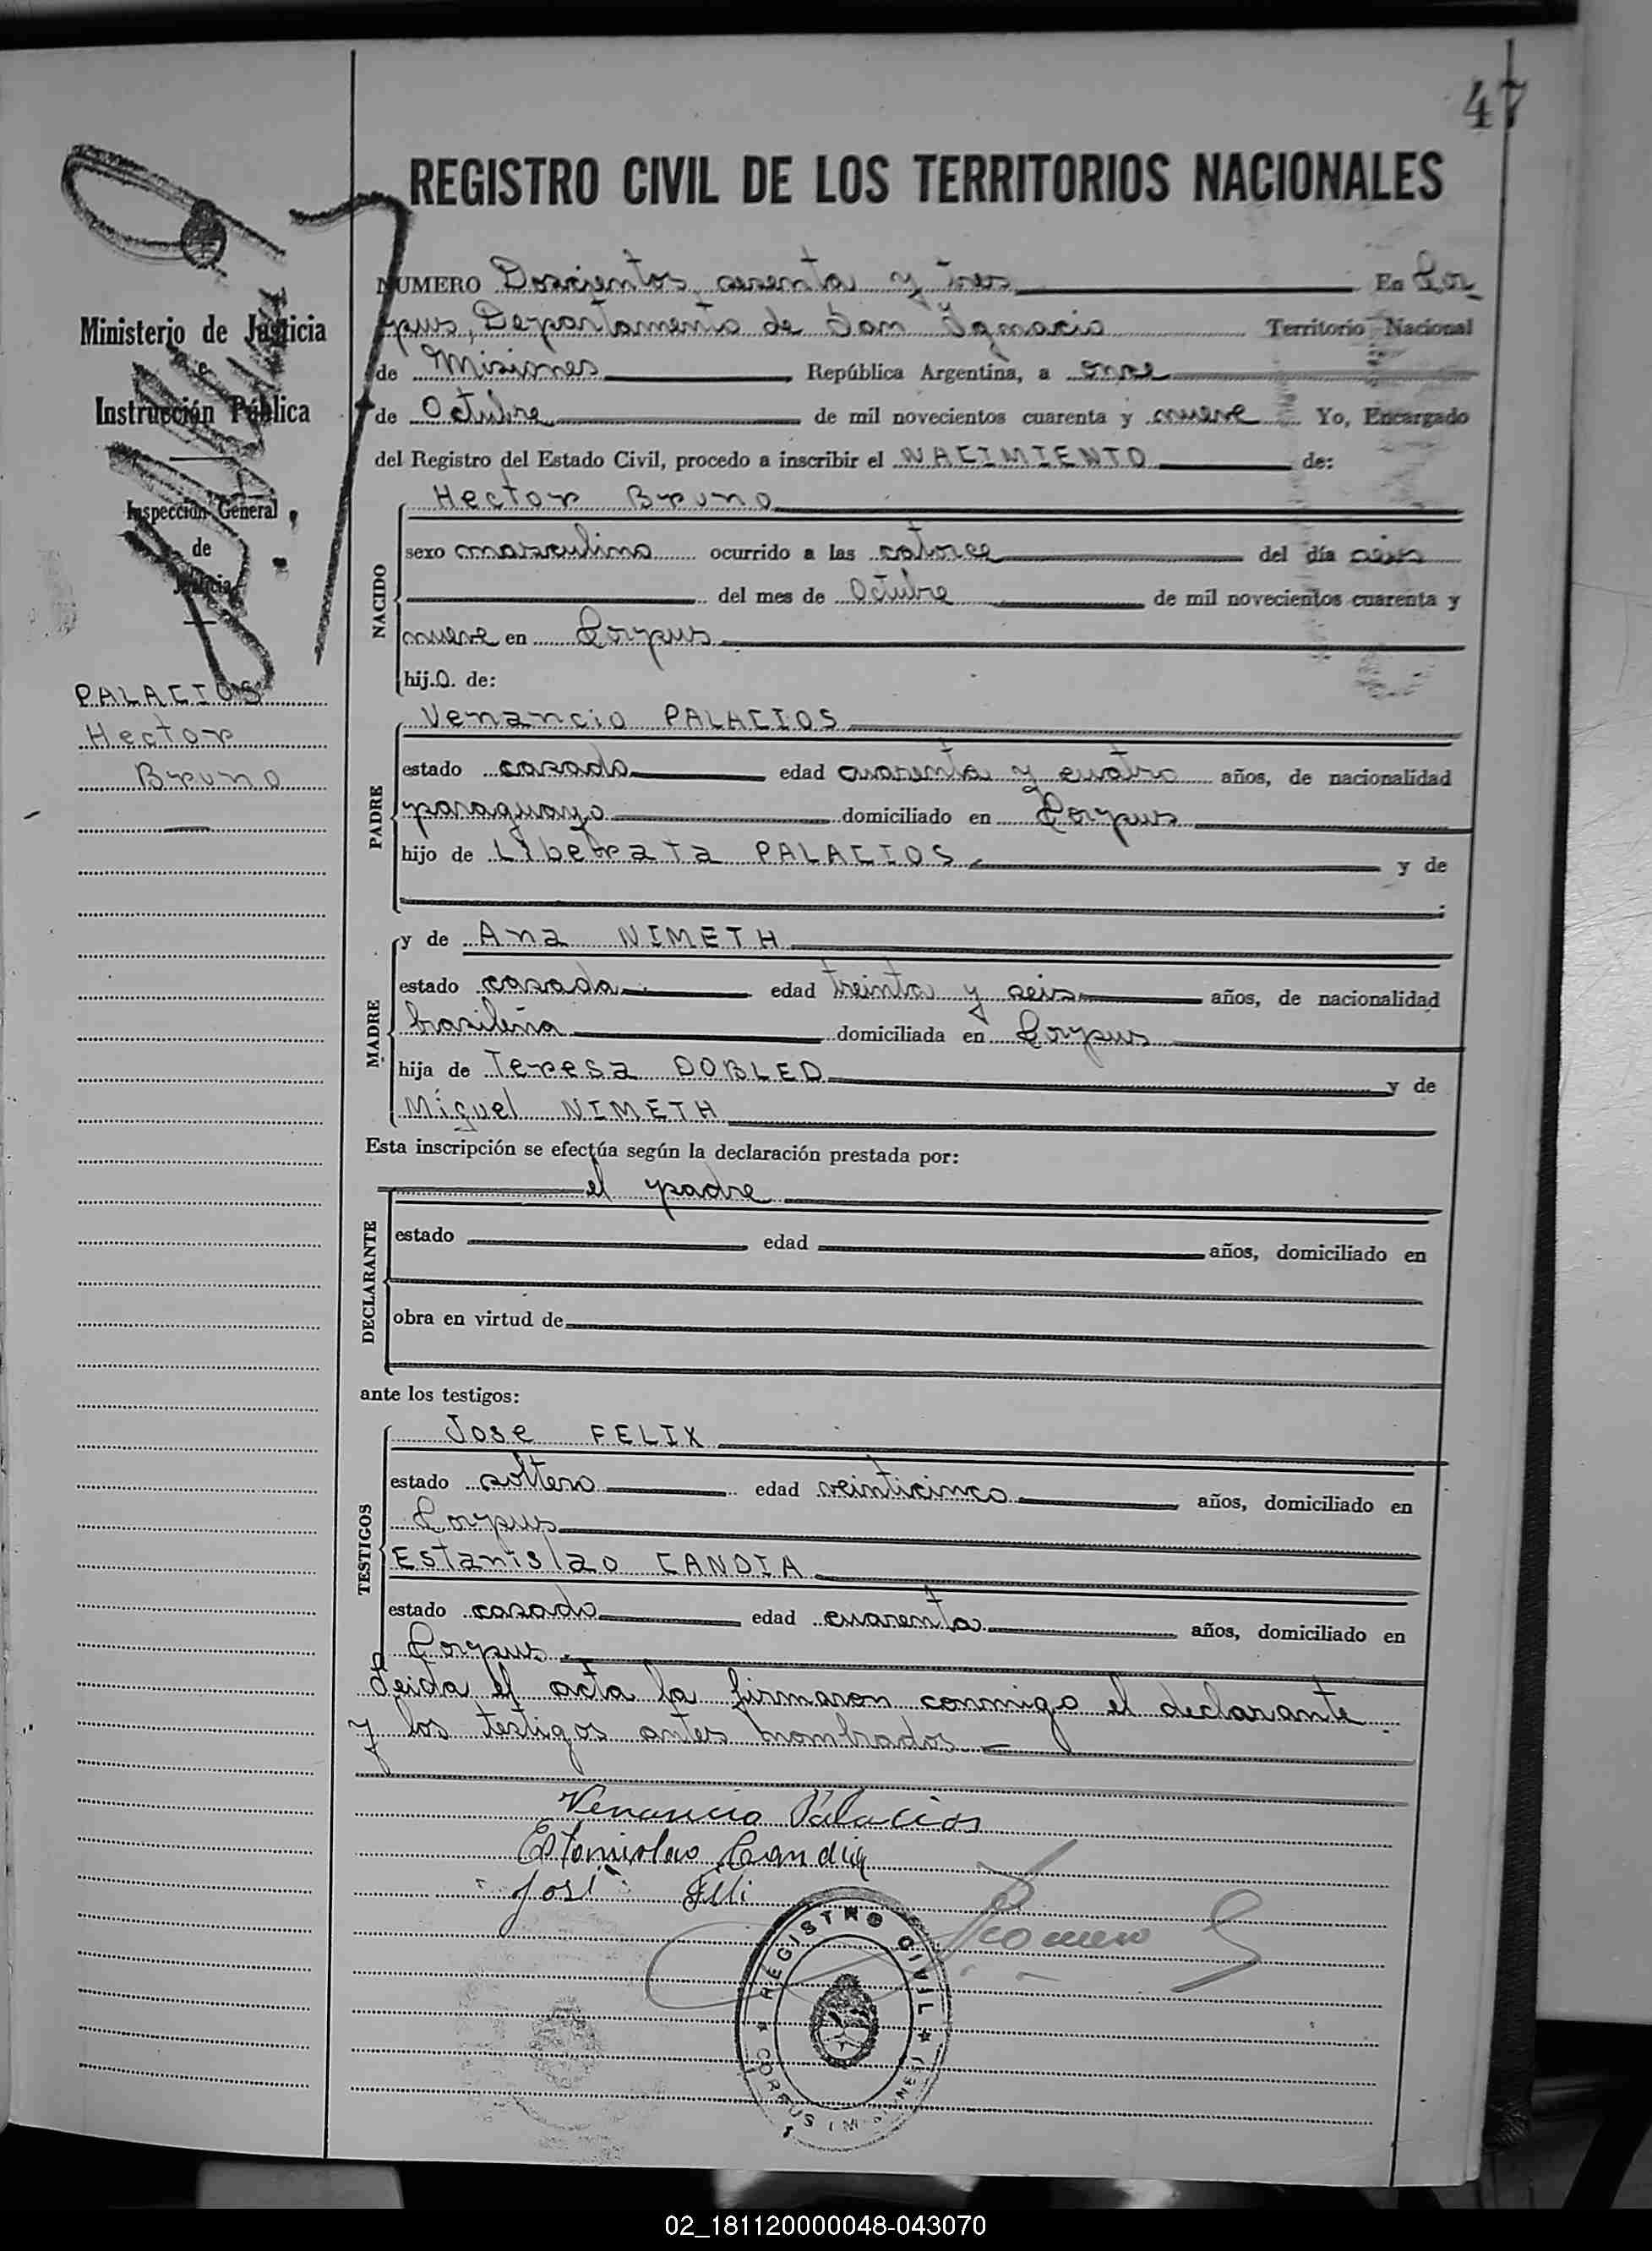 47
REGISTRO CIVIL DE LOS TERRITORIOS NACIONALES
Ministerio de Justicia
e
Instrucción Pública
Inspección General
de
Justicia
PALACIOS
Hector
Bruno
NUMERO Doscientos, cuarenta y tres En Cor
pus, Departamento de San Ignacio Territorio Nacional
de Misiones República Argentina, a once
de Octubre de mil novecientos cuarenta y nueve Yo, Encargado
del Registro del Estado Civil, procedo a inscribir el NACIMIENTO de:
NACIDO
Hector Bruno
sexo masculino ocurrido a las catorce del día seis
del mes de Octubre de mil novecientos cuarenta y
nueve en Corpus
hij.o. de:
PADRE
Venancio PALACIOS
estado casado edad cuarenta y cuatro años, de nacionalidad
paraguayo domiciliado en Corpus
hijo de Liberata PALACIOS, y de
MADRE
y de Ana NIMETH
estado casada edad treinta y seis años, de nacionalidad
brasileña domiciliada en Corpus
hija de Teresa DOBLED y de
Miguel NIMETH
Esta inscripción se efectúa según la declaración prestada por:
DECLARANTE
el padre
estado edad años, domiciliado en
obra en virtud de
ante los testigos:
TESTIGOS
Jose FELIX
estado soltero edad veinticinco años, domiciliado en
Corpus
Estanislao CANDIA
estado casado edad cuarenta años, domiciliado en
Corpus.
Leida el acta la firmaron conmigo el declarante
y los testigos antes nombrados
Venancio Palacios
Estanislao Candia
José
Romero
REGISTRO CIVIL
CORPUS (MISIONES)
02_181120000048-043070